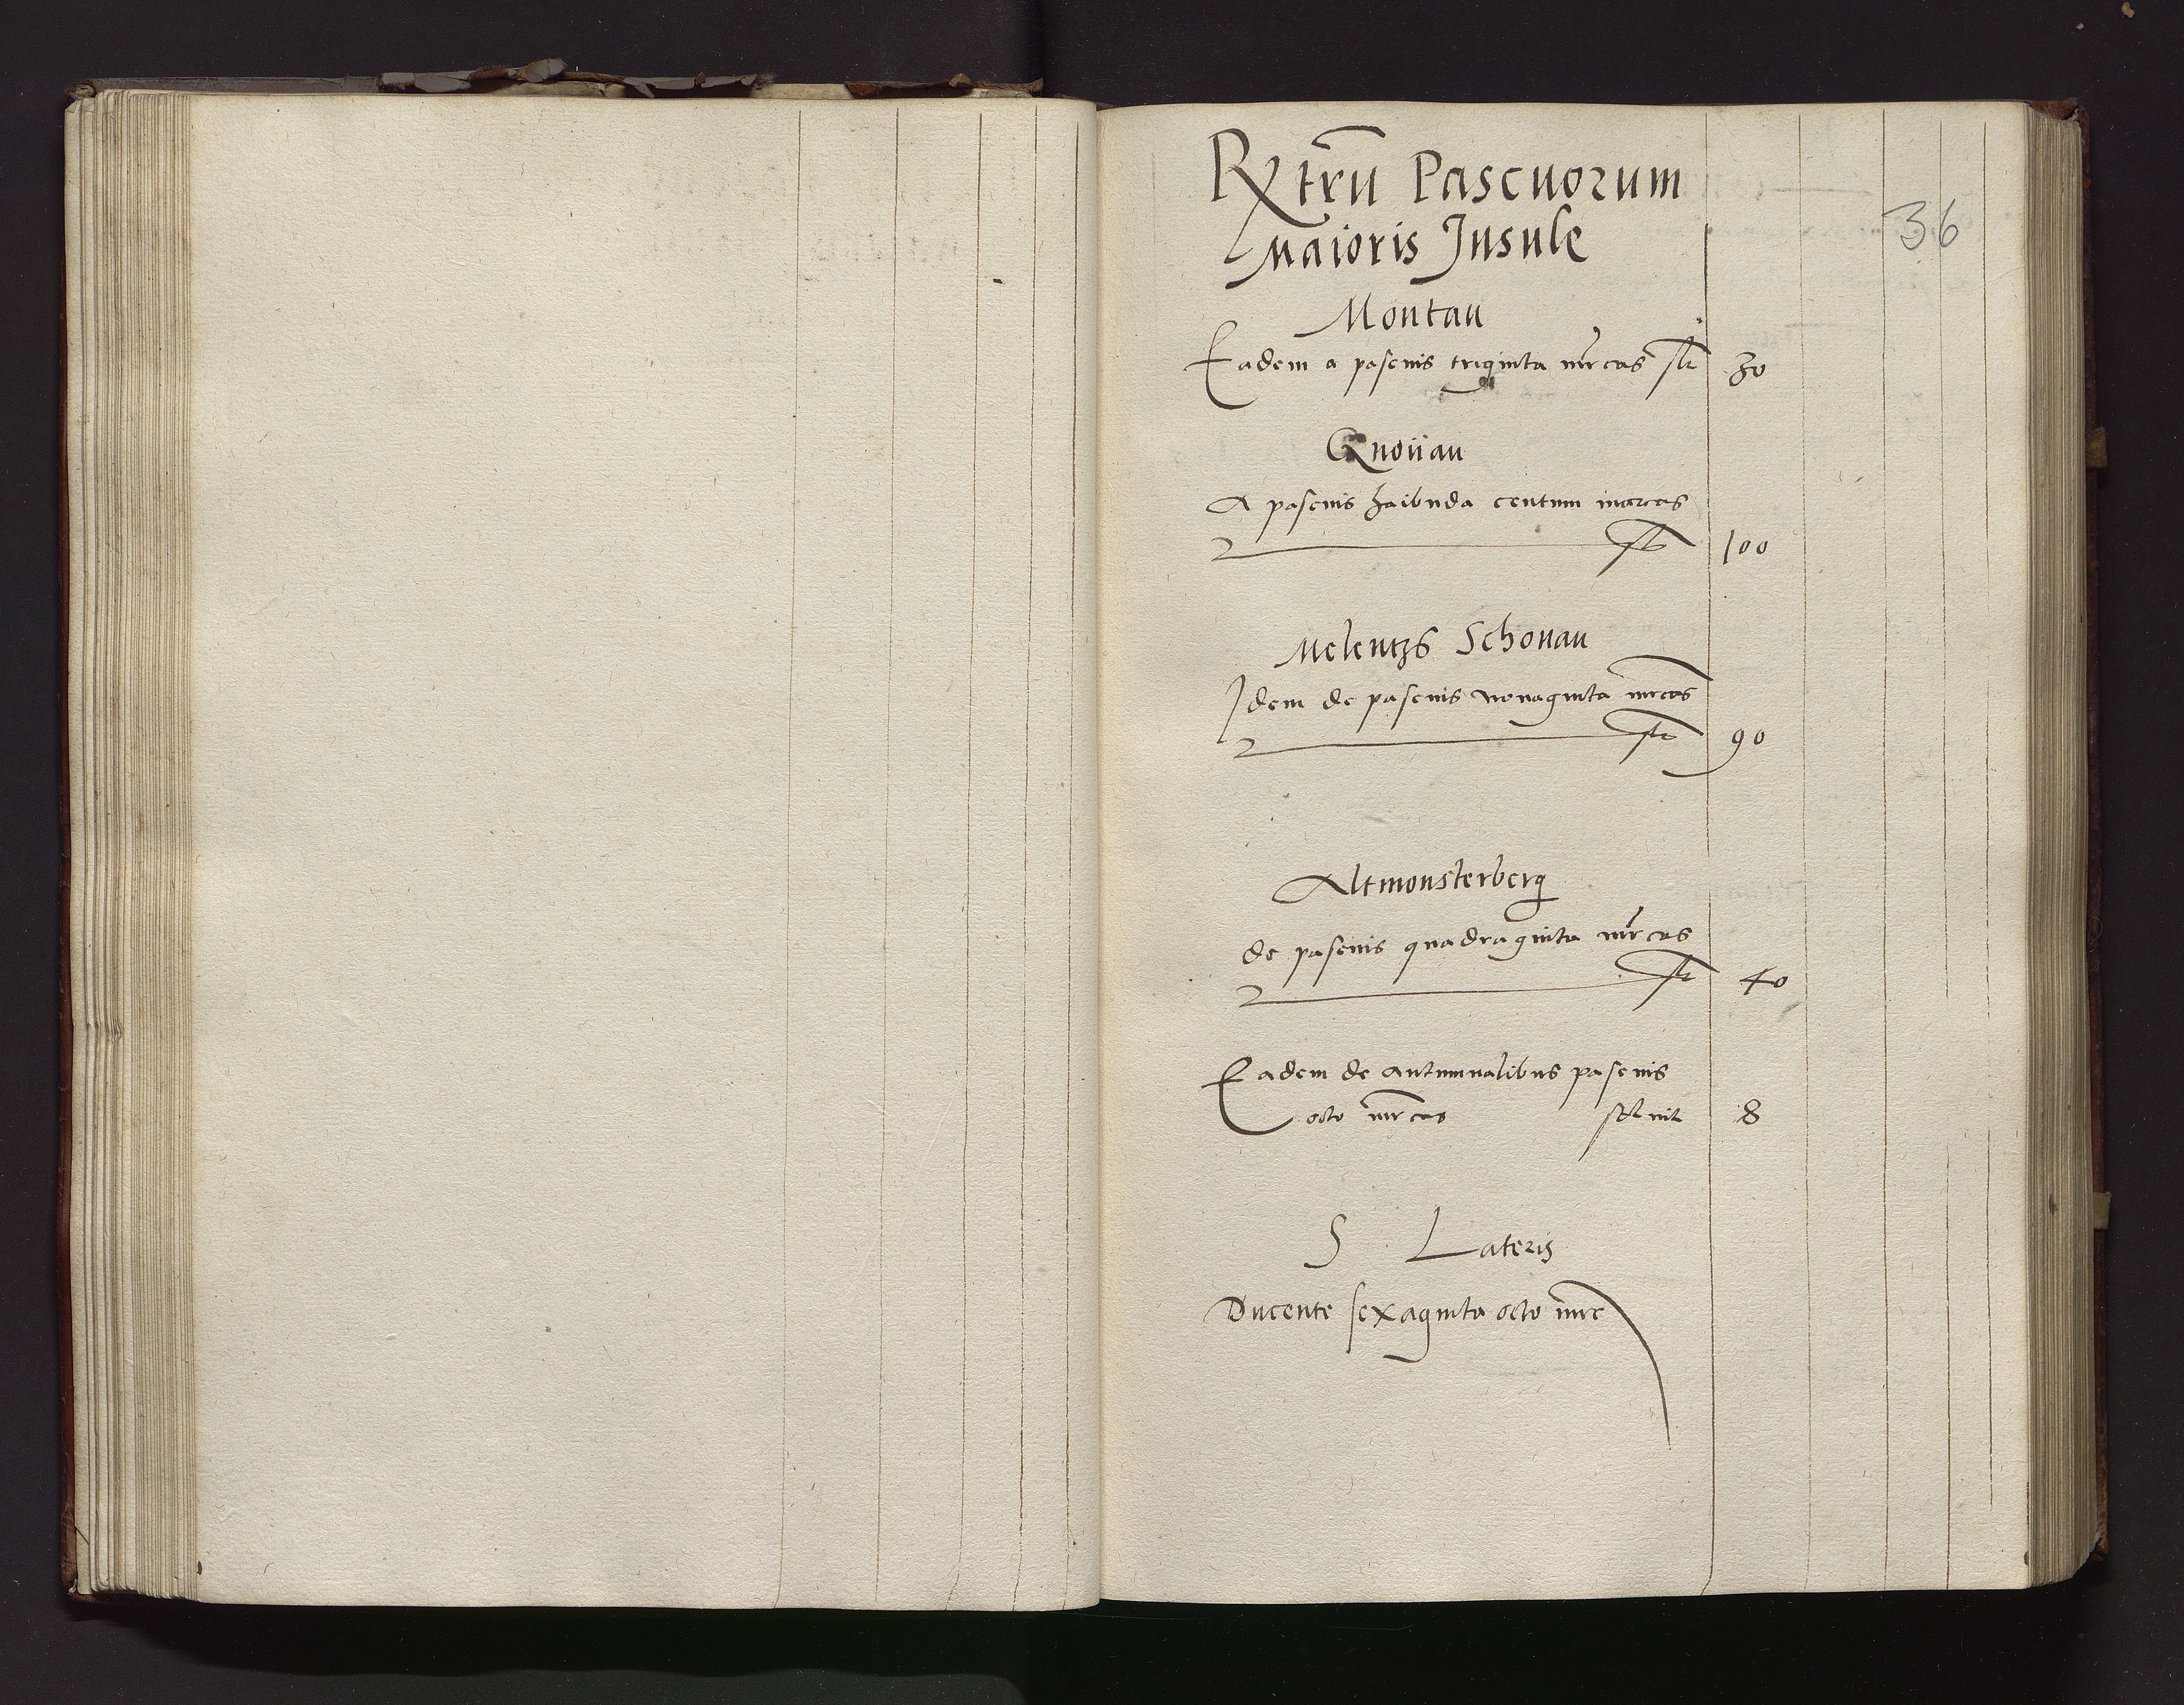 Rx trū Pascuorum
Maioris Insule
36
Montau
Eadem a pascuis triginta mrcas slt 30
Gnoiiau
A pascuis centum marcas
slt 100
Melentzs Schonau
Idem de pascuis nonaginta mrcas
slt 90
Altmonsterberg
de pascuis quadraginta mrcas
slt 40
Eadem de autumnalibus pascuis
octo mrcas soluit 8
S Lateris
Ducente sexaginta octo mrc